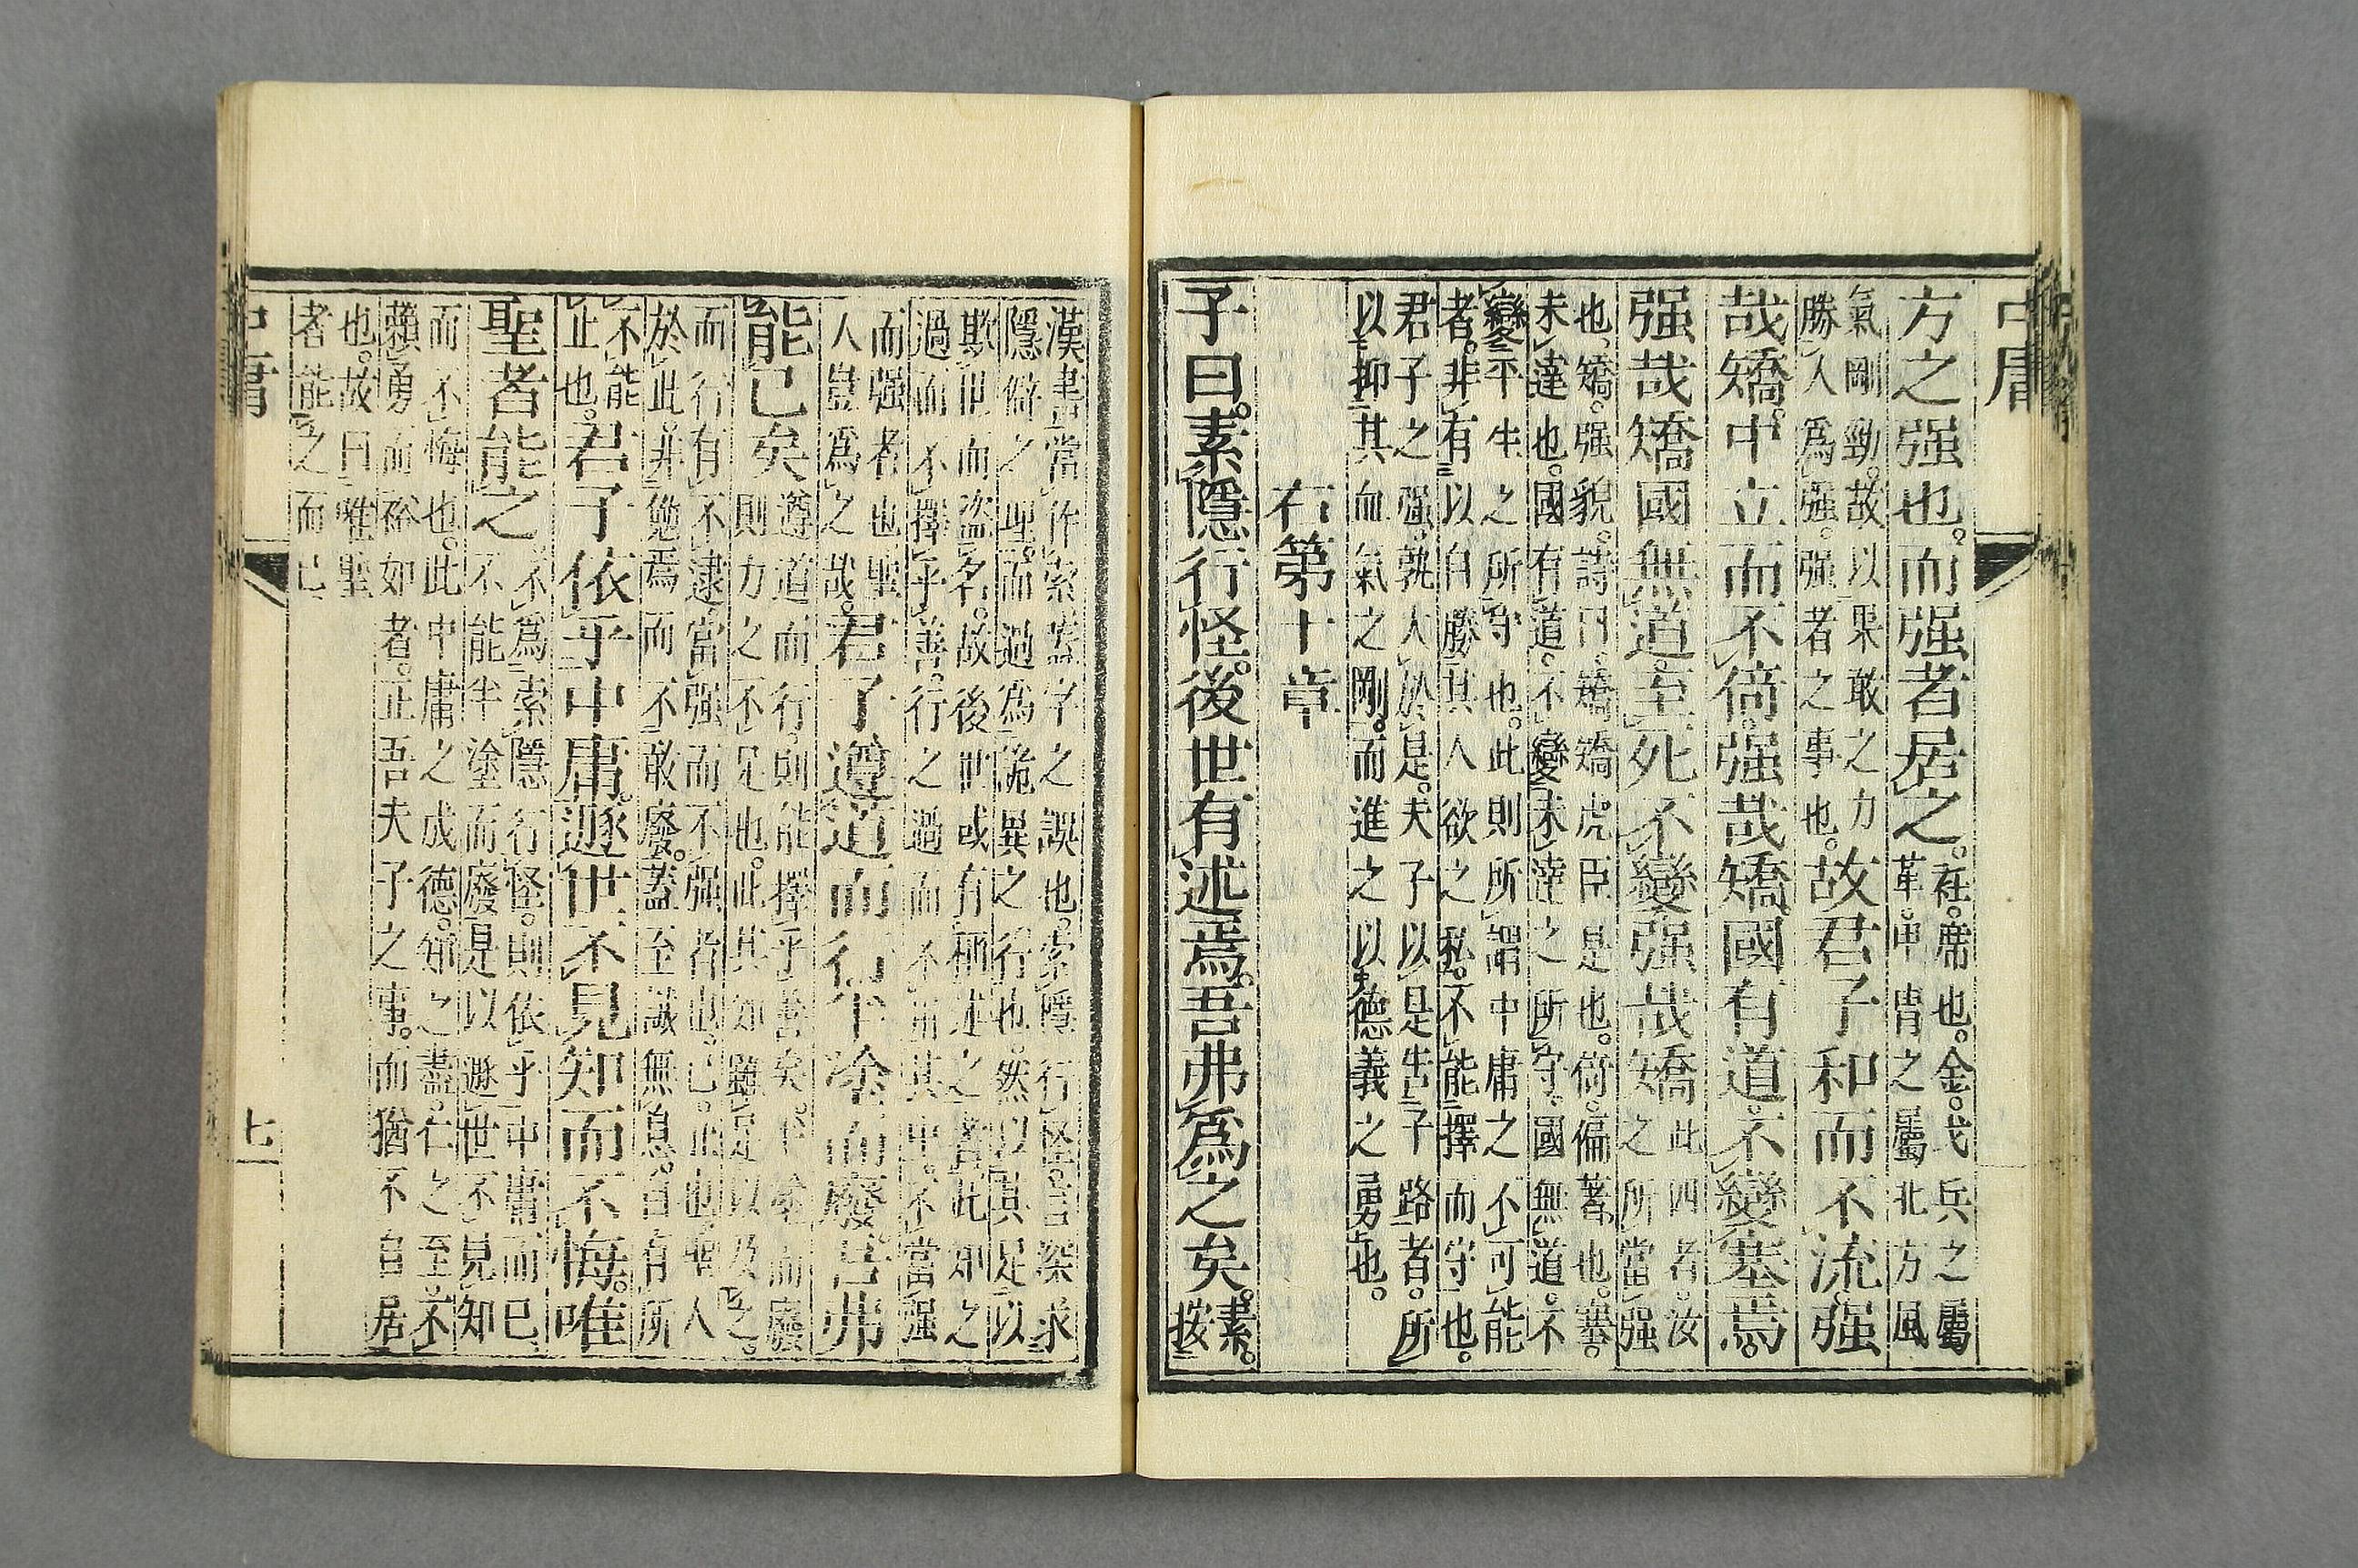 中庸
方之强也。而强者居之。衽。席也。金。戈兵之屬
革。甲冑之屬北方風
氣剛勁。故以果敢之力
勝人爲强。强者之事也。故君子和而不流。强
哉矯。中立而不倚。强哉矯。國有道。不變塞焉。
强哉矯國無道。至死不變强哉矯此四者。汝
之所當强
也、矯。强貌。詩曰、矯矯虎臣是也。倚。偏著也。塞。
未達也。國有道。不變未達之所守。國無道。不
變平生之所守也。此則所謂中庸之不可能
者。非有以自勝其人欲之私。不能擇而守也。
君子之强。孰大於是。夫子以是告子路者。所
以抑其血氣之剛。而進之以德義之勇也。
右第十章
子曰。素隱行怪。後世有述焉。吾弗爲之矣。素。
按
漢書當作索蓋字之誤也。索隱行怪。言深求
隱僻之理。而過爲詭異之行也。然以其足以
欺世而盜名。故後世或有稱述之者。此知之
過而不擇乎善。行之過而不用其中。不當强
而强者也聖
人豈爲之哉。君子遵道而行半塗而廢吾弗
能已矣遵道而行。則能擇乎善矣。半塗而廢
則力之不足也。此其知雖足以及之。
而行有不逮。當强而不强者也。已。止也。聖人
於此。非勉焉而不敢廢。蓋至誠無息。自有所
不能
止也。君子依乎中庸。遯世不見知而不悔。唯
聖者能之不爲索隱行怪。則依乎中庸而已
不能半塗而廢是以遯世不見知
而不悔也。此中庸之成德。知之盡。仁之至。不
賴勇而裕如者。正吾夫子之事。而猶不自居
也。故曰唯聖
者能之而已
中庸
七